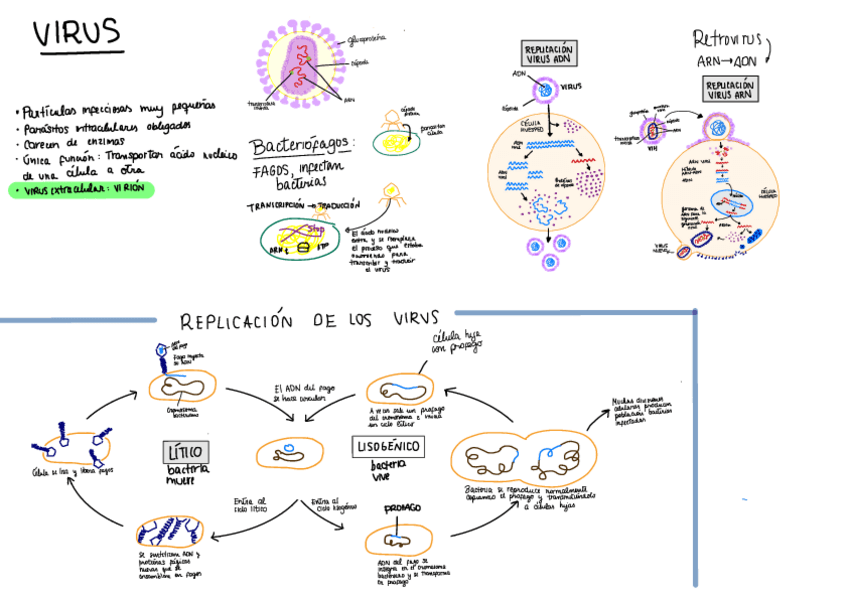 VIRUS
• Partículas infecciosas muy pequeñas
• Parásitos intracelulares obligados
• Carecen de enzimas
• Única función: Transportan ácido nucleico
de una célula a otra
• VIRUS EXTRACELULAR: VIRIÓN
Glucoproteína
Cápside
ARN
Bacteriófagos:
FAGOS, infectan
bacterias
TRANCRIPCIÓN → TRADUCCIÓN
Stop
ARN t
El ácido nucleico
entra y se remplaza
el proceso que estaba
ocurriendo para
transcribir y traducir
el virus
REPLICACIÓN
VIRUS ADN
ADN
VIRUS
Cápside
CÉLULA
HUÉSPED
Retrovirus
ARN→ADN
REPLICACIÓN
VIRUS ARN
VIH
CÉLULA
HUÉSPED
REPLICACIÓN DE LOS VIRUS
Fago inyecta
su ADN
Cromosoma
bacteriano
El ADN del fago
se hace circular
Célula hija
con profago
A veces sale un profago
del cromosoma e inicia
un ciclo lítico
Muchas divisiones
celulares producen
población bacterias
infectadas
LÍTICO
bacteria
muere
LISOGÉNICO
bacteria
vive
Célula se lisa y libera fagos
Entra al
ciclo lítico
Entra al
ciclo lisogénico
PROFAGO
Bacteria se reproduce normalmente
copiando el profago y transmitiéndolo
a células hijas
Se sintetizan ADN y
proteínas fágicas
nuevas que se
ensamblan en fagos
ADN del fago se
integra en el cromosoma
bacteriano y se transforma
en profago